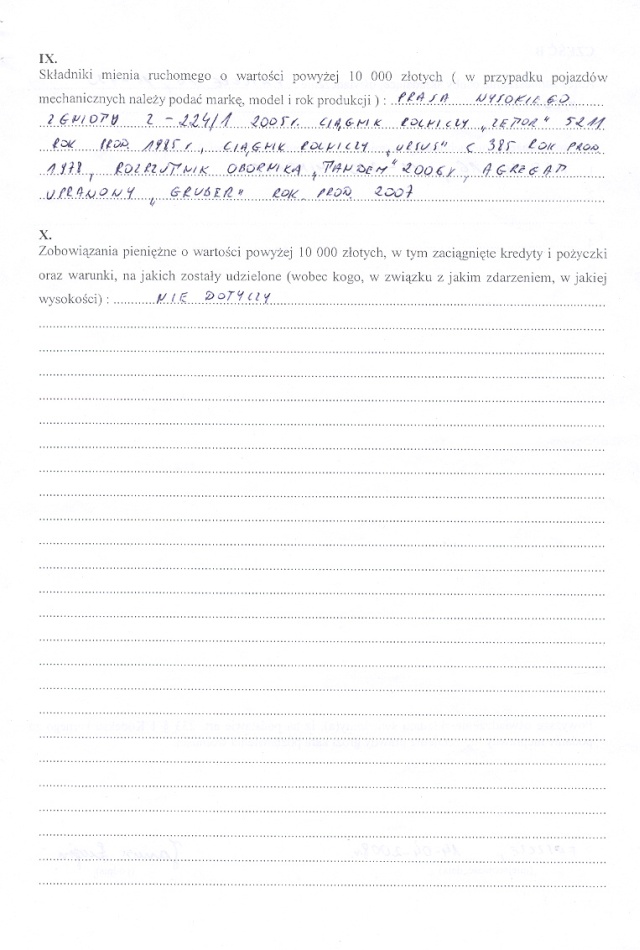 IX.
Składniki mienia ruchomego o wartości powyżej 10 000 złotych ( w przypadku pojazdów
mechanicznych należy podać markę, model i rok produkcji ) : PRASA WYSOKIEGO
ZGNIOTU Z-224/1 2005r. CIĄGNIK ROLNICZY „ZETOR" 5211
ROK PROD. 1985r, CIĄGNIK ROLNICZY „URSUS" C 385 ROK PROD.
1978, ROZRZUTNIK OBORNIKA „TANDEM" 2006r, AGREGAT
UPRAWOWY „GRUBER" ROK PROD. 2007
X.
Zobowiązania pieniężne o wartości powyżej 10 000 złotych, w tym zaciągnięte kredyty i pożyczki
oraz warunki, na jakich zostały udzielone (wobec kogo, w związku z jakim zdarzeniem, w jakiej
wysokości) : NIE DOTYCZY